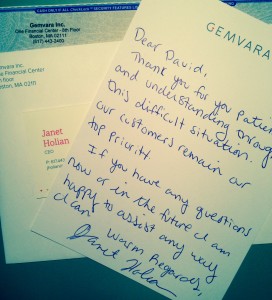 Gemvara Inc.
One Financial Center - 5th Floor
Boston, MA 02111
(617) 442-2403
Gemvara Inc.
One Financial Center
Boston, MA 02111
Janet
Holian
CEO
GEMVARA
Dear David,
Thank you for you patience
and understanding through
this difficult situation.
our customers remain our
top priority.
If you have any questions
now or in the future I am
happy to assist any way
I can!
Warm Regards,
Janet Holian